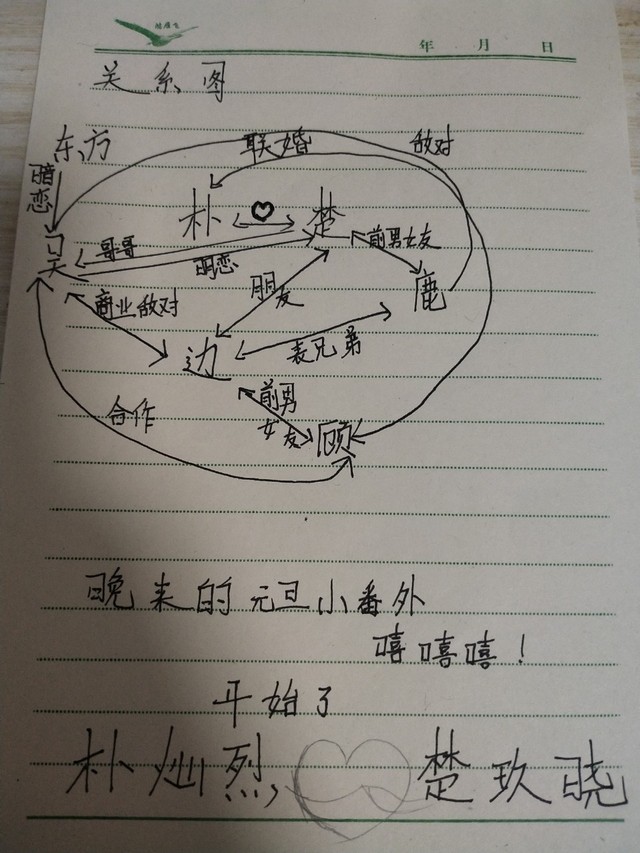 鸿雁飞
年 月 日
关系图
东方
联婚
敌对
暗恋
朴
楚
哥哥
前男女友
吴
暗恋
朋友
鹿
商业敌对
边
表兄弟
前男
女友
合作
顾
晚来的元旦小番外
嘻嘻嘻！
开始了
朴灿烈，
楚玖晓